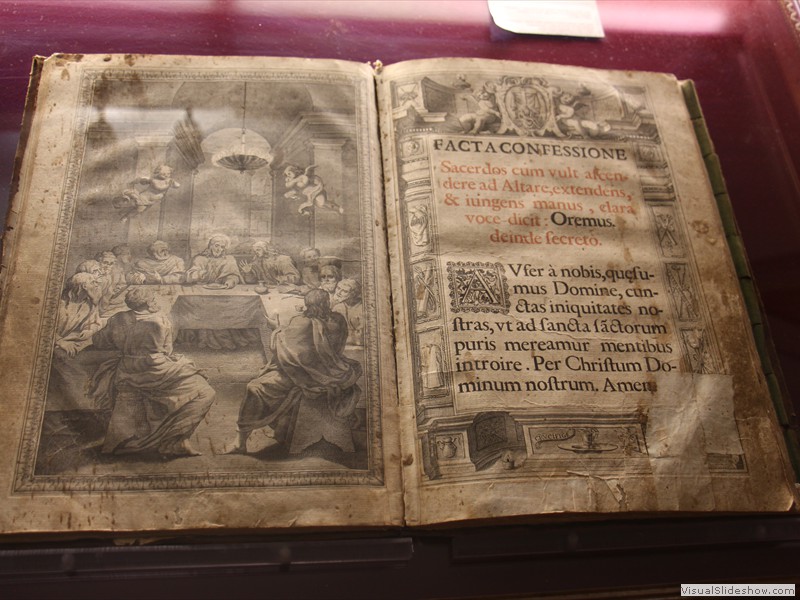 FACTA CONFESSIONE
Sacerdos cum vult aſcen-
dere ad Altare, extendens,
& iungens manus, clara
voce dicit: Oremus.
deinde ſecretò.
AVfer à nobis, quęſu-
mus Domine, cun-
ctas iniquitates no-
ſtras, vt ad ſancta ſãctorum
puris mereamur mentibus
introire. Per Chriſtum Do-
minum noſtrum. Amen.
VisualSlideshow.com